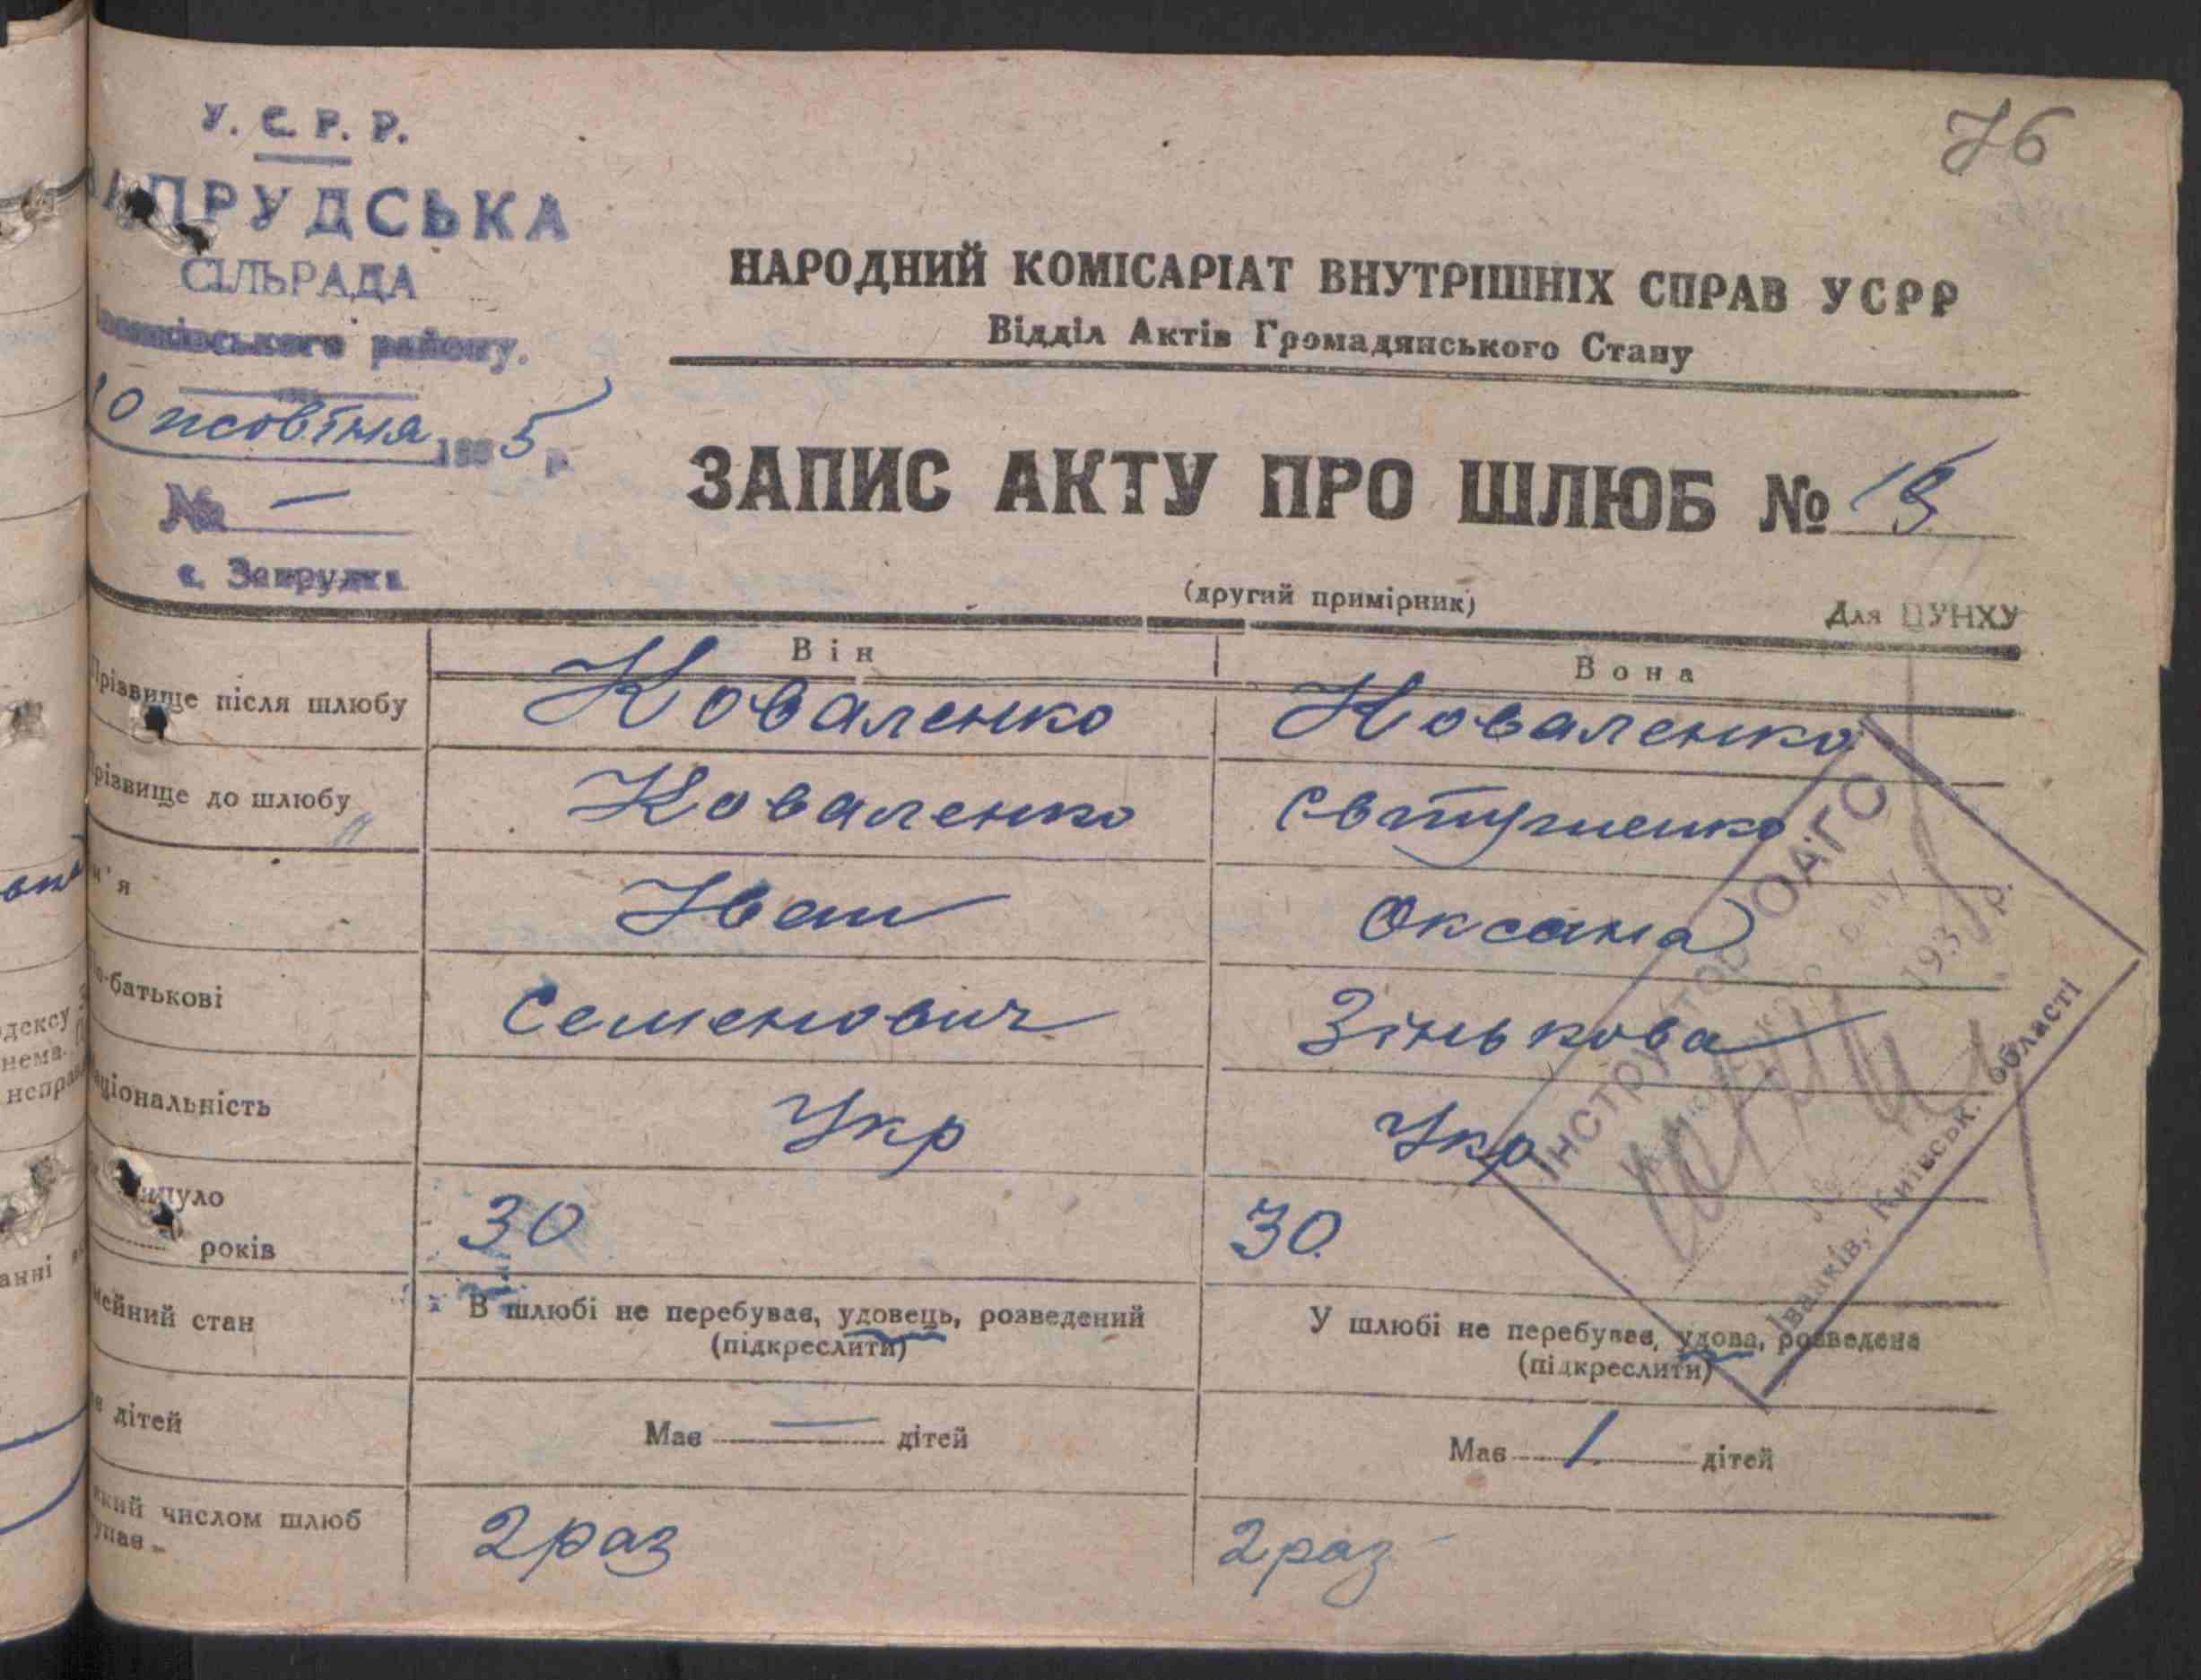 76
У. С. Р. Р.
ЗАПРУДСЬКА
СІЛЬРАДА
району.
10 жовтня 1935 р.
№ —
с. Запрудка
НАРОДНИЙ КОМІСАРІАТ ВНУТРІШНІХ СПРАВ УСРР
Відділ Актів Громадянського Стану
ЗАПИС АКТУ ПРО ШЛЮБ №
(другий примірник)
Для ЦУНХУ
Він Вона
Прізвище після шлюбу Коваленко Коваленко
Прізвище до шлюбу Коваленко Євтушенко
м'я Іван Оксана
о-батькові Семенович Зінькова
аціональність Укр Укр
минуло
років 30 30
мейний стан В шлюбі не перебував, удовець, розведений У шлюбі не перебував, удова, розведена
(підкреслити) (підкреслити)
в дітей Має — дітей Має 1 дітей
який числом шлюб 2 раз 2 раз
упав
Інструктор ОАГС
193 р.
№
Іванків, Київськ. області